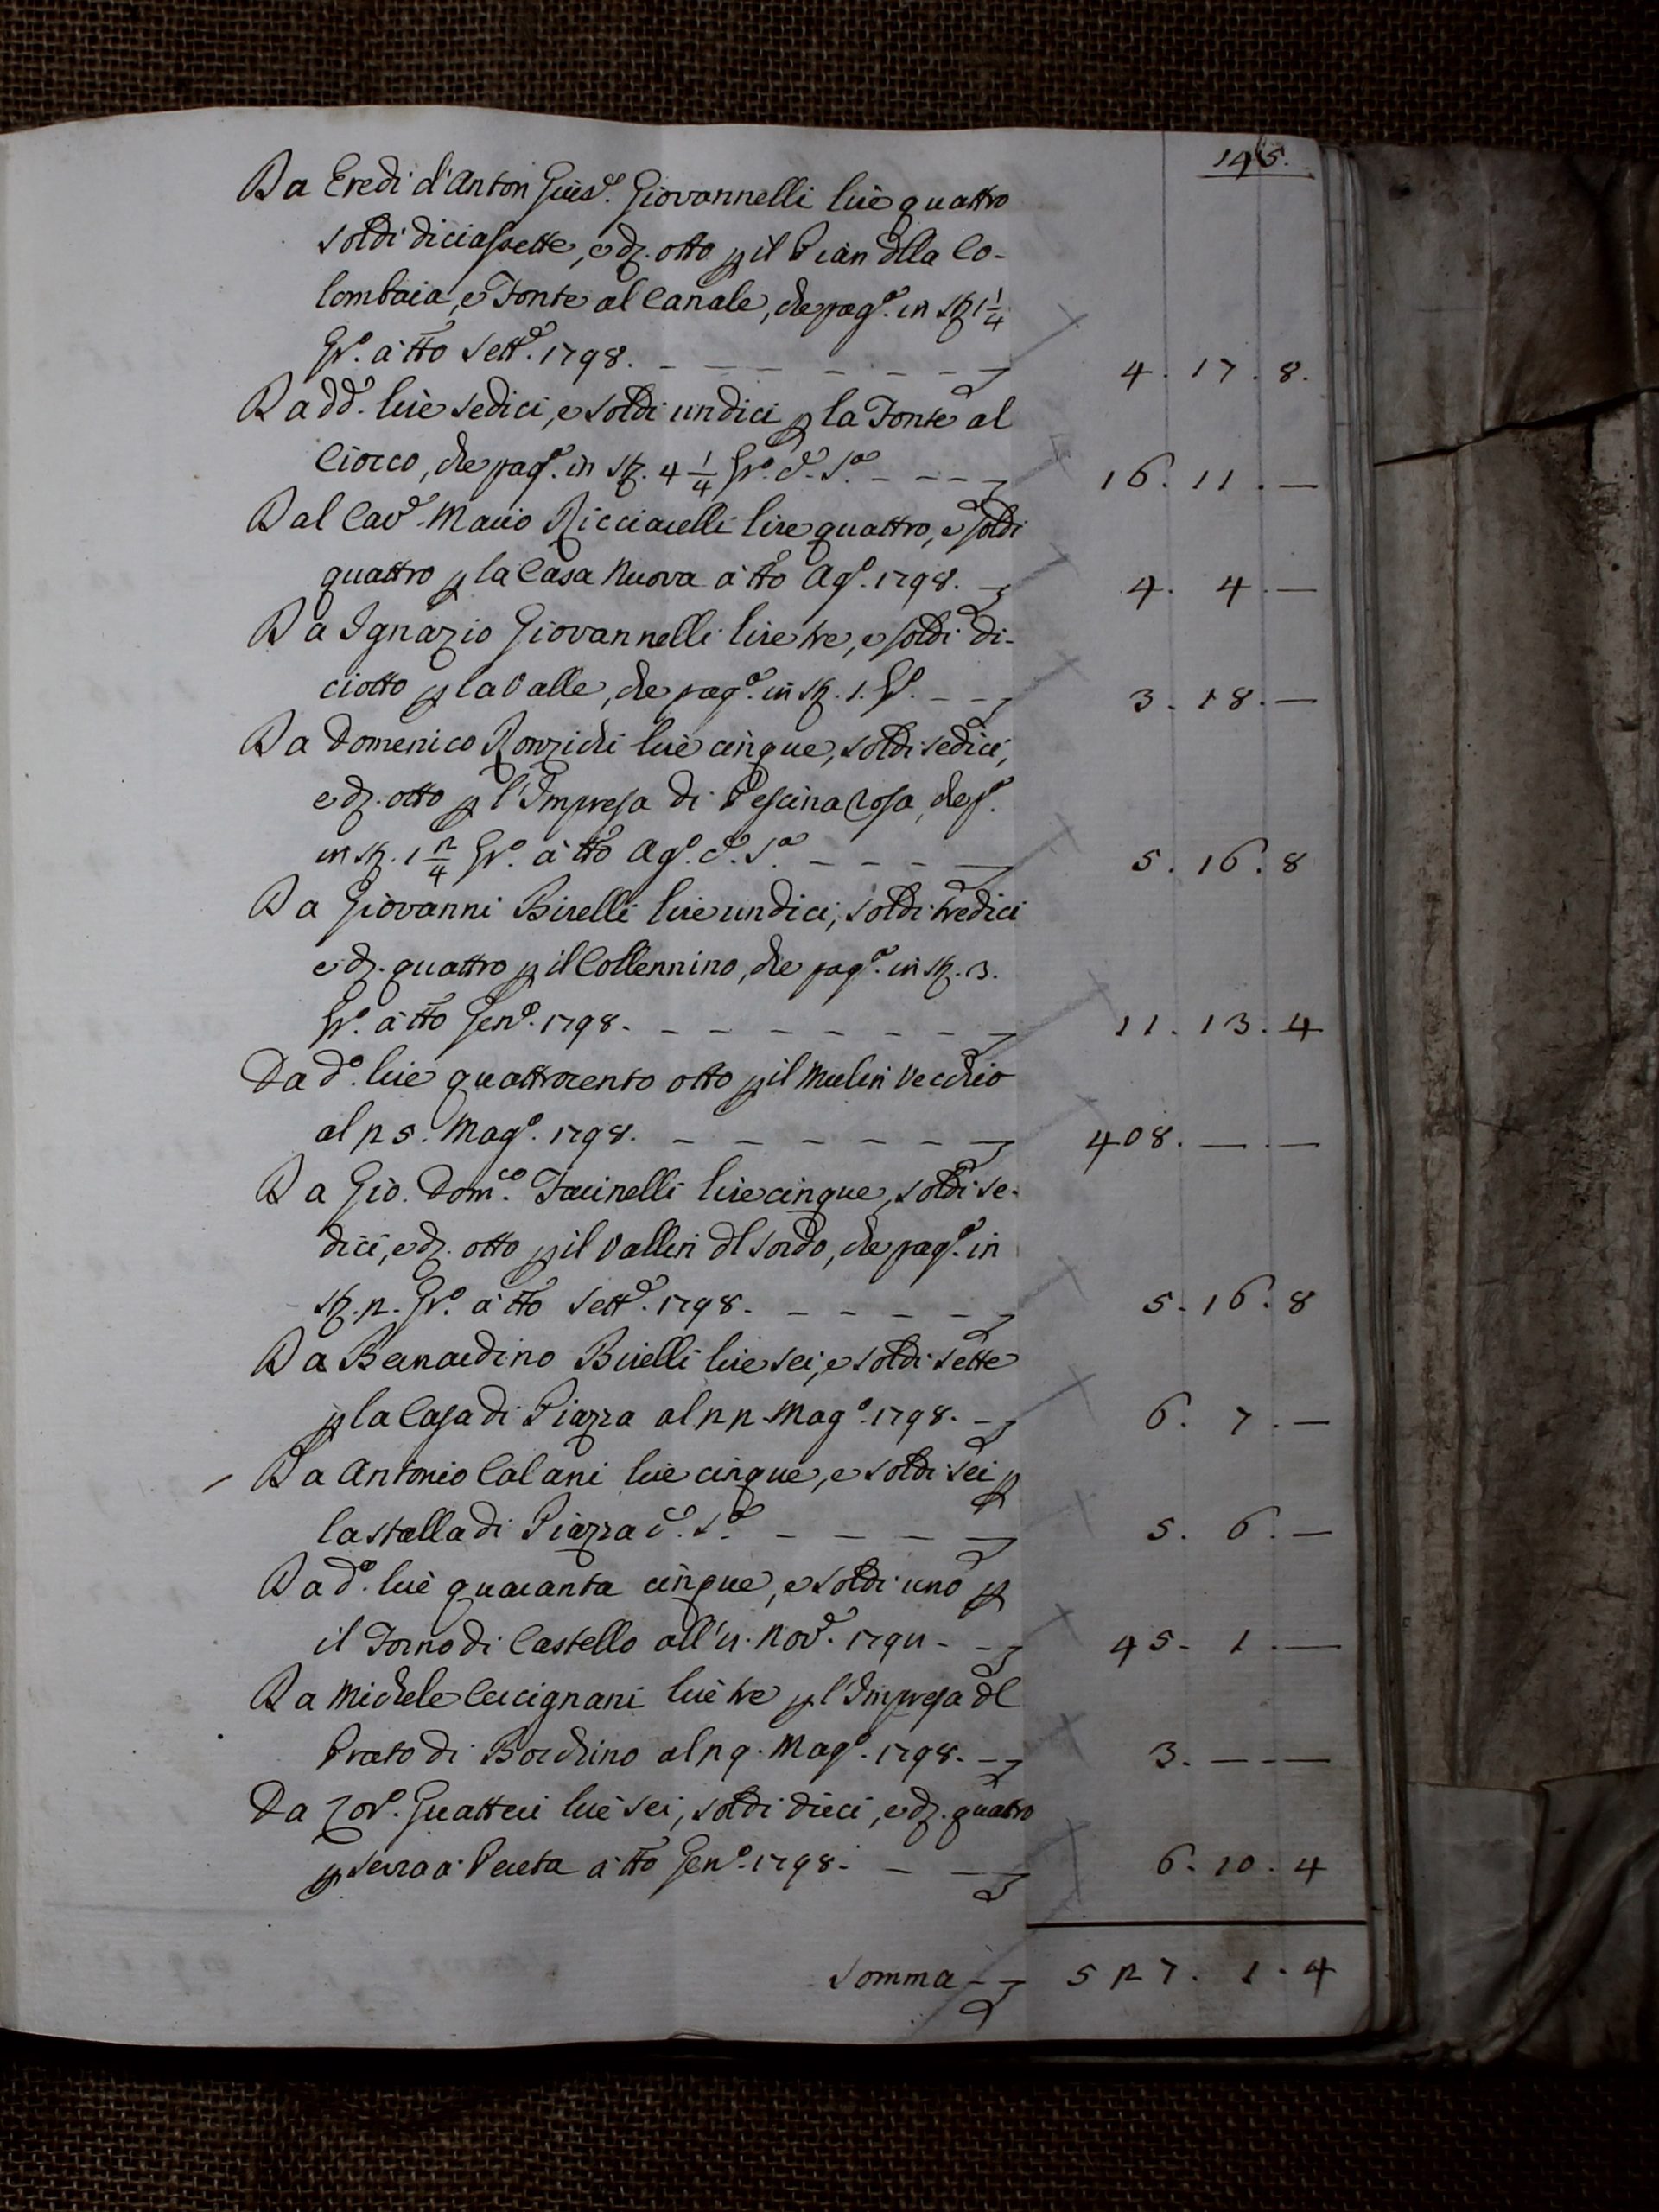 145.
Da Eredi d'Anton Gius.e Giovannelli lire quattro
soldi diciassette, e d. otto p il Pian dlla Co-
lombaia, e Fonte al Canale, che pag.o in st. 1 1/4
Gr.o a tto Sett.e 1798. 4. 17. 8.
Da dd.i lire sedici, e soldi undici p la Fonte al
Ciocco, che pag.o in st. 4 1/4 Gr.o d.o S.o 16. 11. —
Dal Cav.e Mario Ricciarelli lire quattro, e soldi
quattro p la Casa Nuova a tto Ag.o 1798. 4. 4. —
Da Ignazio Giovannelli lire tre, e soldi di-
ciotto p la Valle, che pag.o in st. 1. Gr.o 3. 18. —
Da Domenico Ronzichi lire cinque, soldi sedici,
e d. otto p l'Impresa di Pescina rosa, che p.o
in st. 1 2/4 Gr.o a tto Ag.o d.o S.o 5. 16. 8
Da Giovanni Birelli lire undici, soldi tredici
e d. quattro p il Collennino, che pag.o in st. 3.
Gr.o a tto Gen.o 1798. 11. 13. 4
Da d.o lire quattrocento otto p il Mulin Vecchio
al 25. Mag.o 1798. 408. — —
Da Gio. Dom.co Facinelli lire cinque, soldi se-
dici, e d. otto p il Vallin dl Sordo, che pag.o in
st. 2. Gr.o a tto Sett.e 1798. 5. 16. 8
Da Bernardino Birelli lire sei, e soldi sette
p la Casa di Piazza al 22. Mag.o 1798. 6. 7. —
Da Antonio Calani lire cinque, e soldi sei p
la stalla di Piazza d.o S.o 5. 6. —
Da d.o lire quaranta cinque, e soldi uno p
il Forno di Castello all' 11. Nov.e 1797. 45. 1. —
Da Michele Cecignani lire tre p l'Impresa dl
Prato di Borchino al 29. Mag.o 1798. 3. — —
Da Guatteri lire sei, soldi dieci, e d. quattro
p Serra a Pereta a tto Gen.o 1798. 6. 10. 4
Somma 527. 1. 4